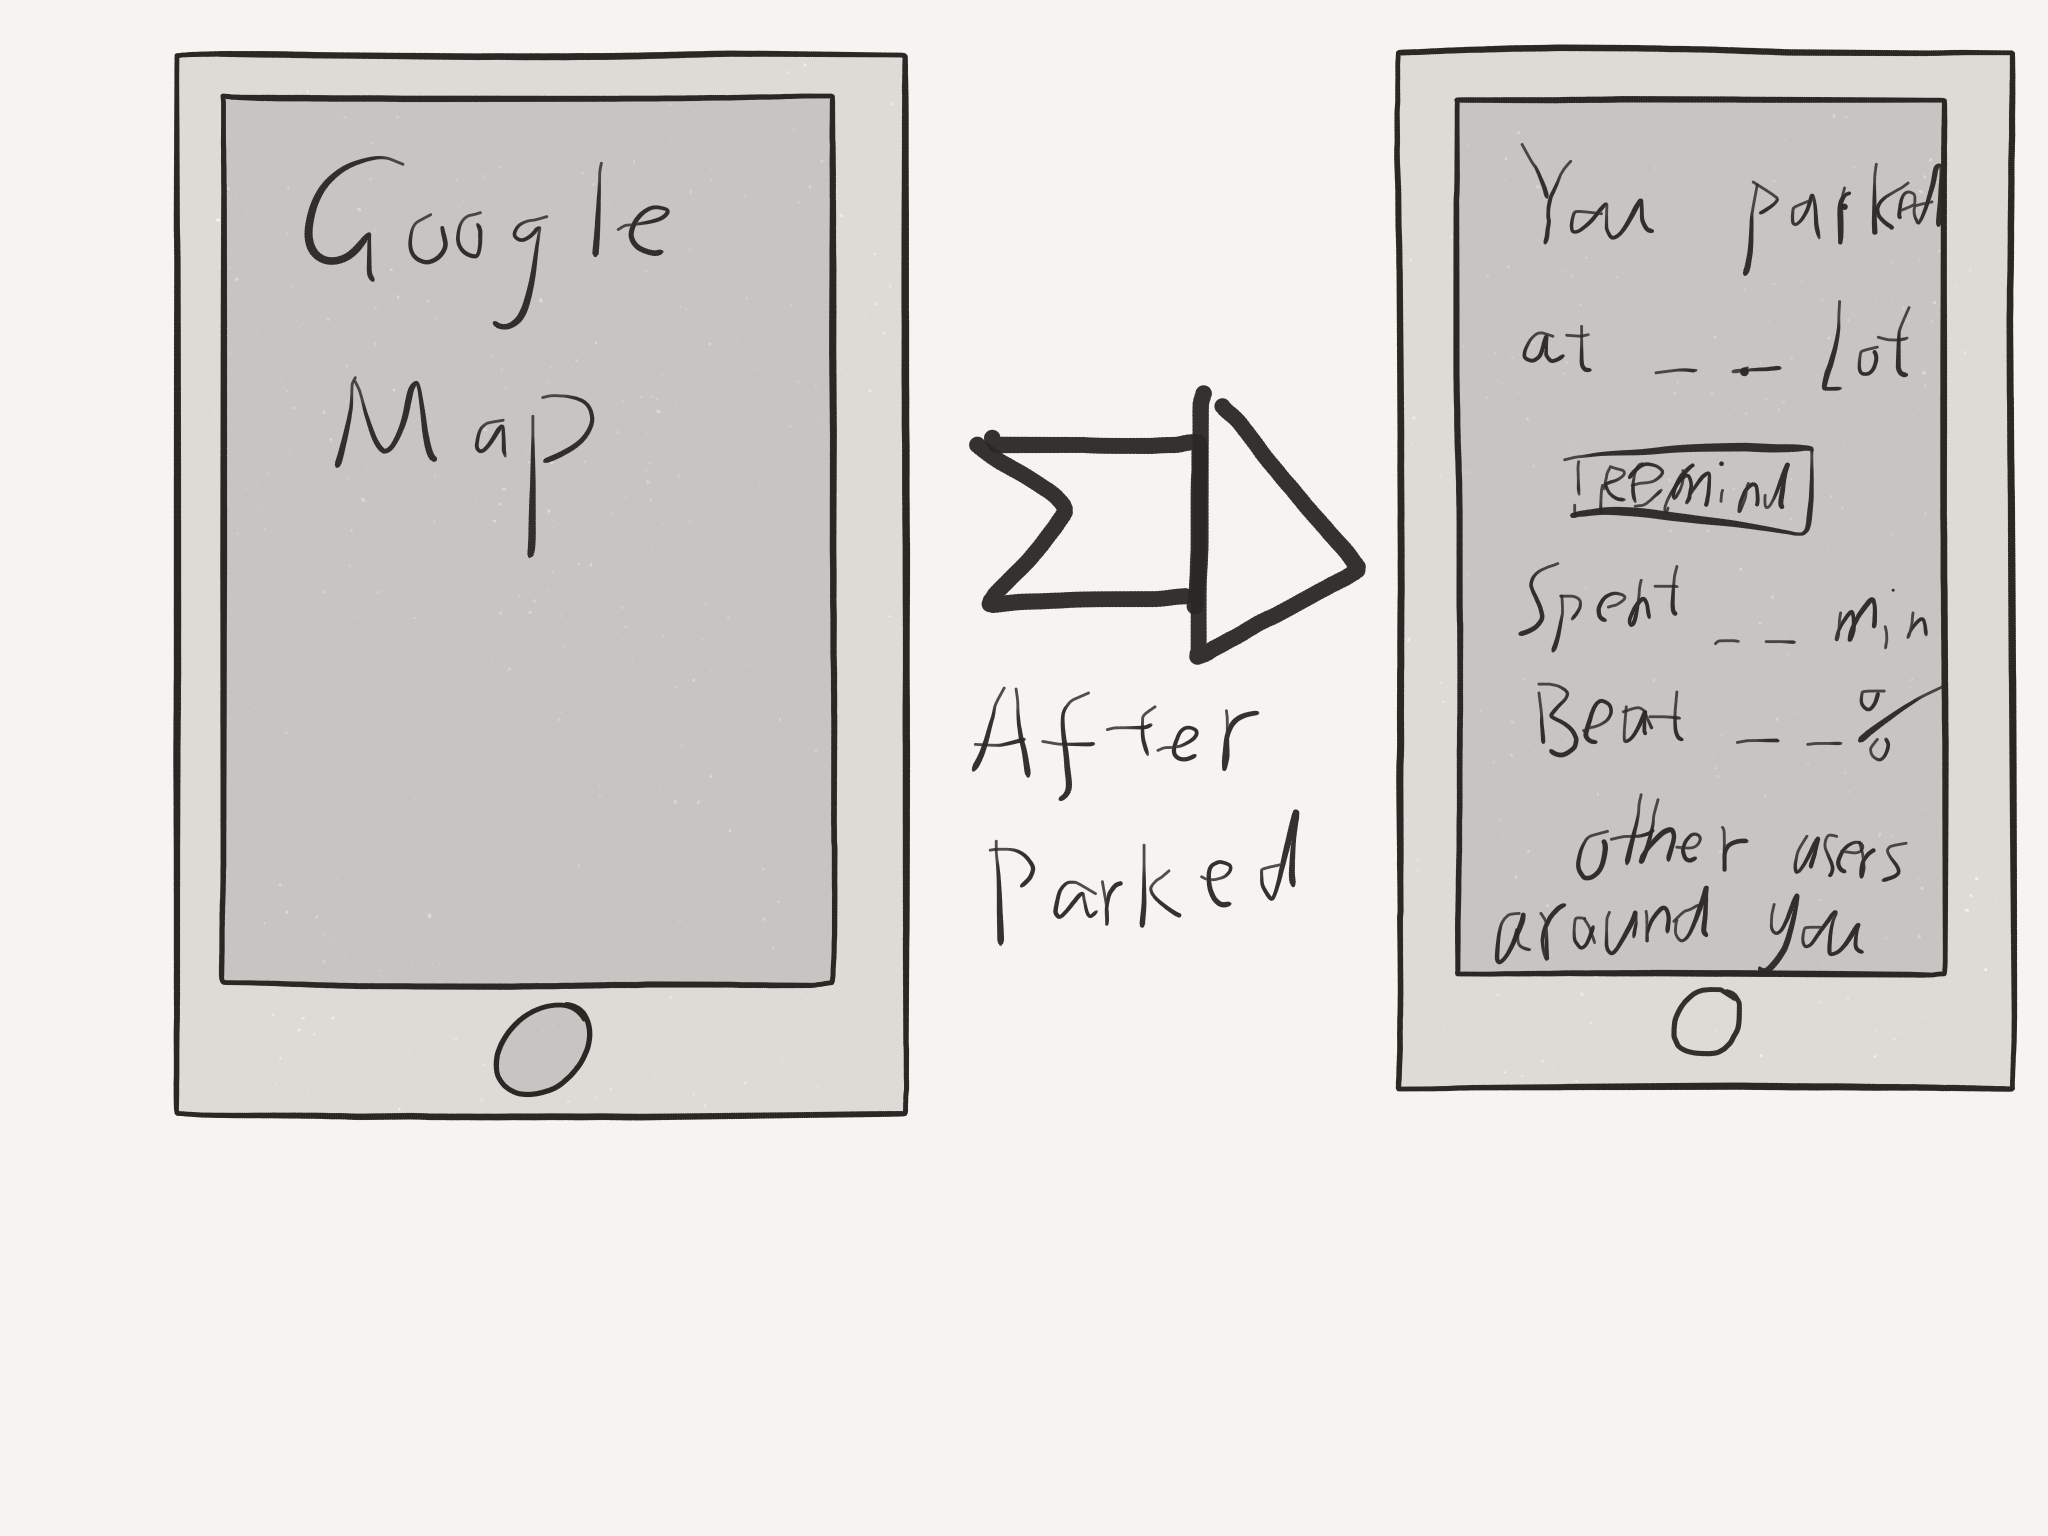 Google
Map
After
Parked
You parked
at _ _ Lot
remind
Spent _ _ min
Beat _ _ %
other users
around you